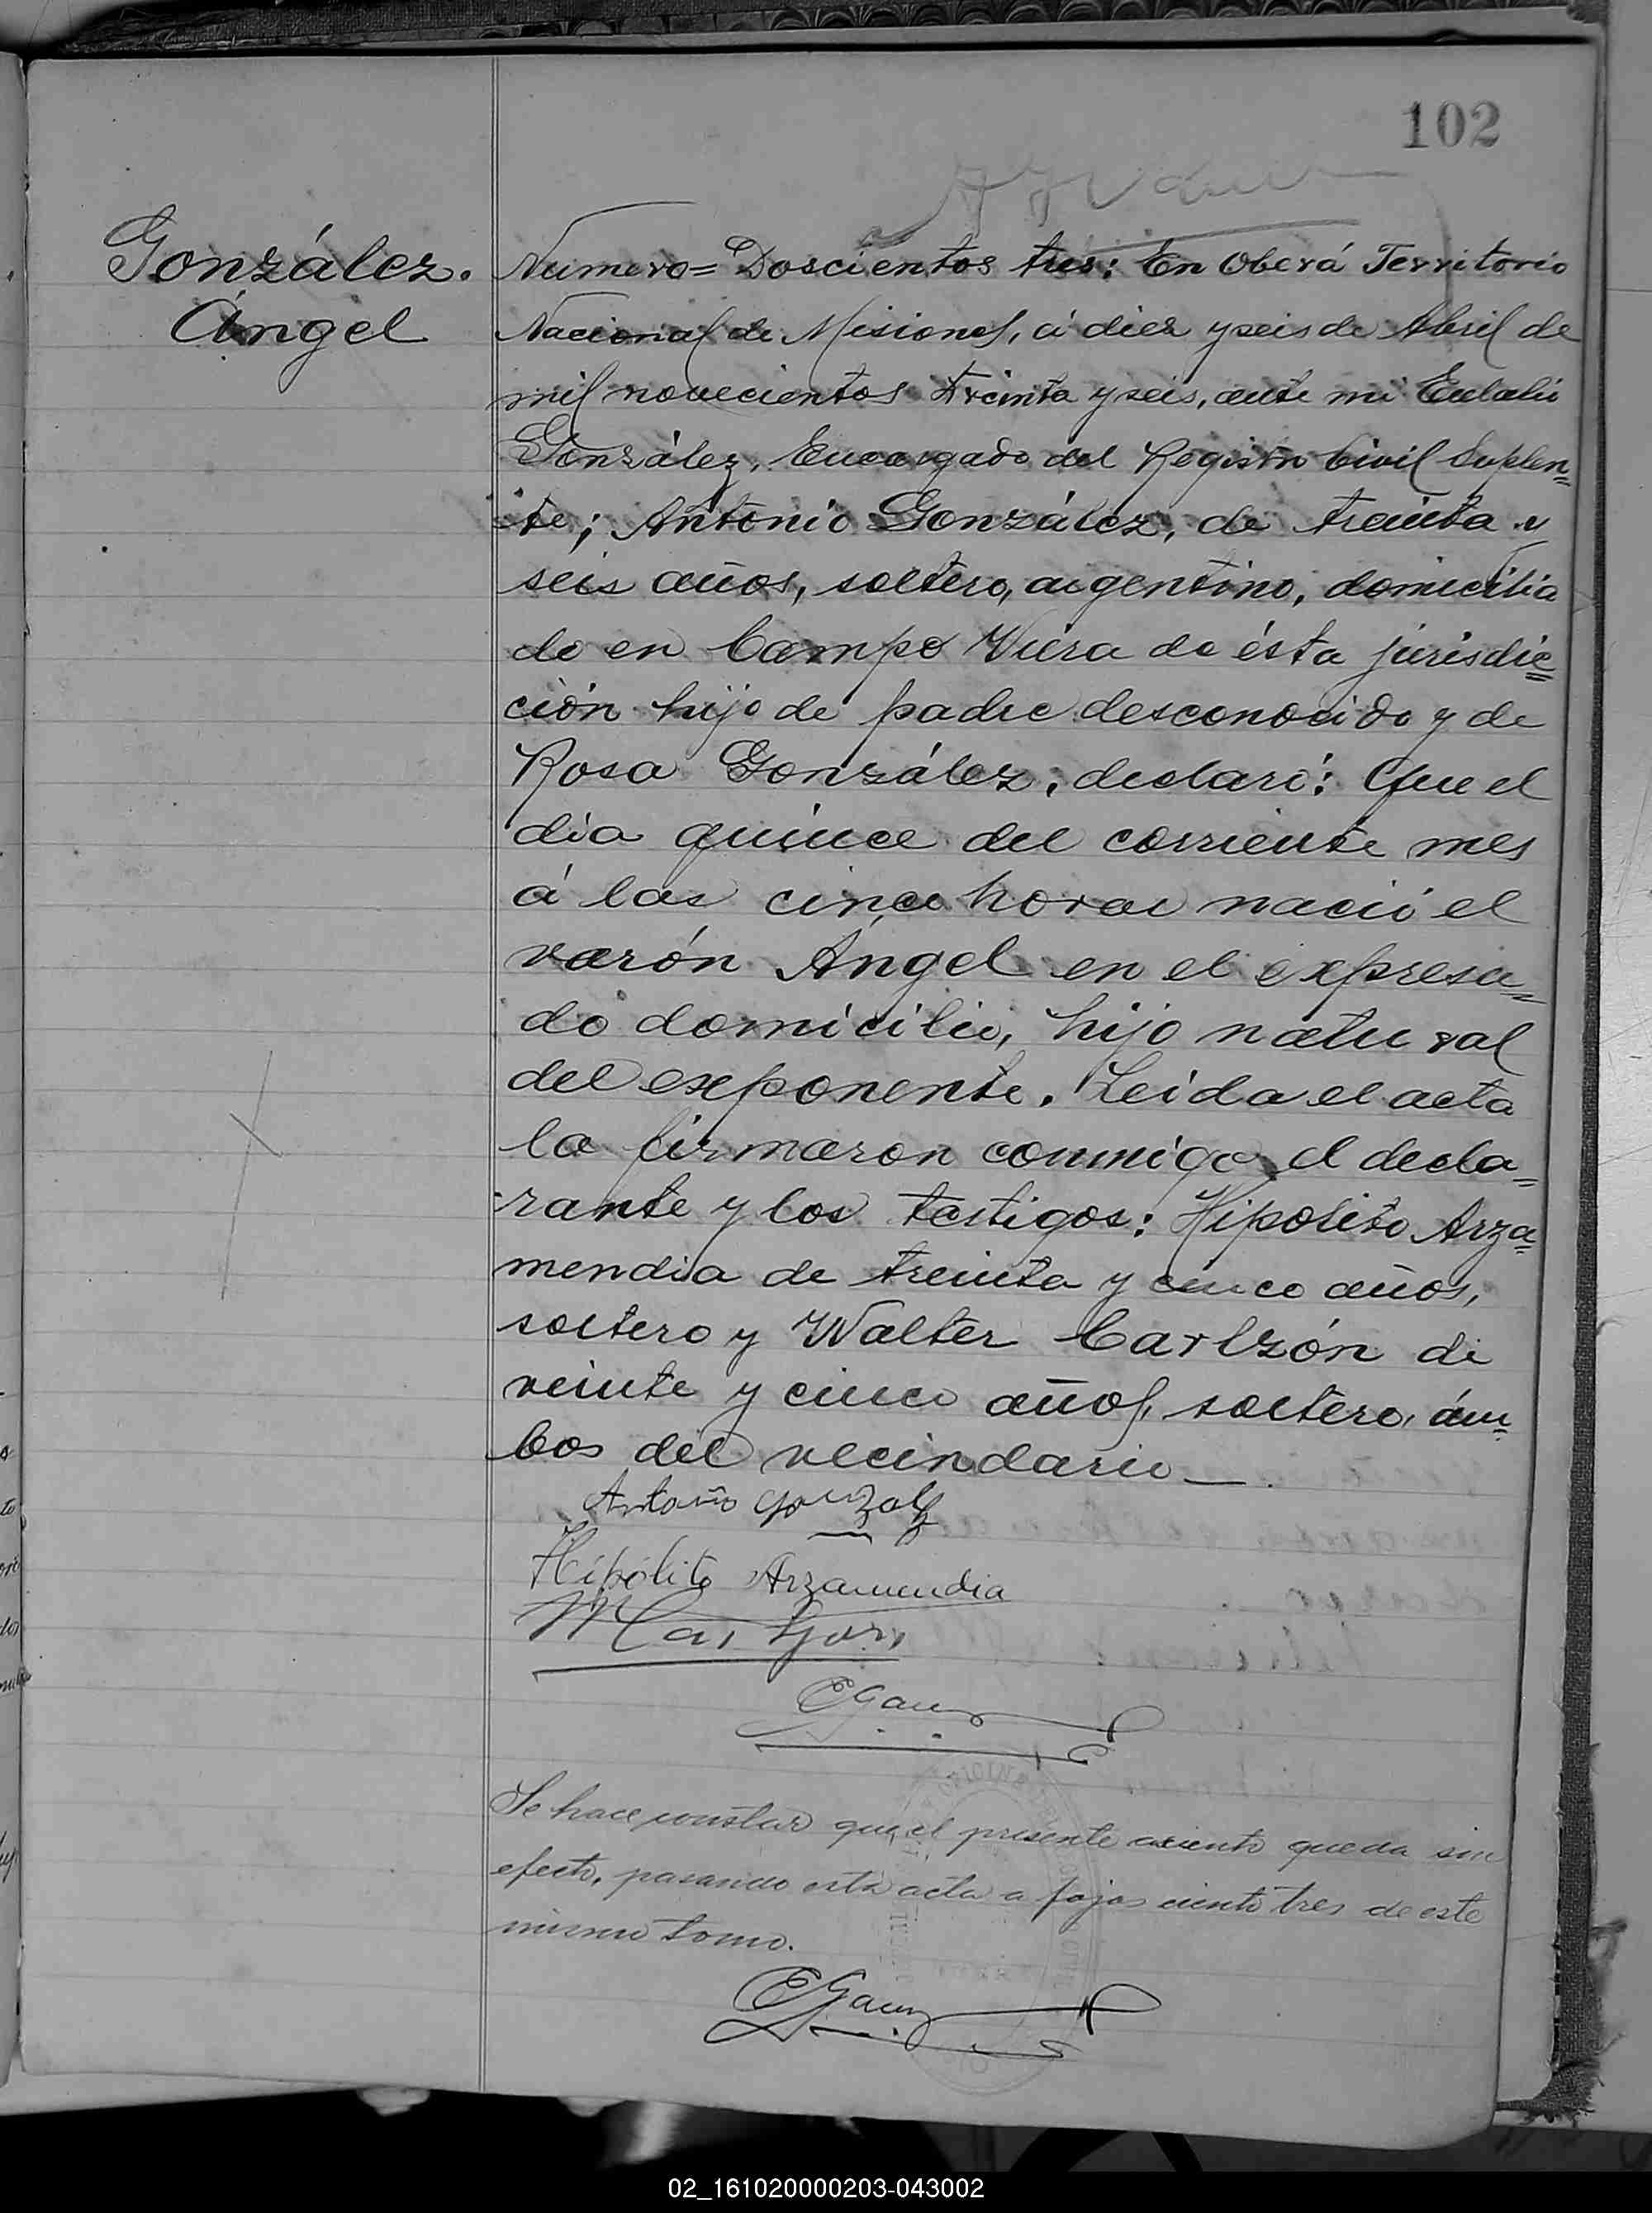 102
González.
Ángel
Número= Doscientos tres: En Oberá Territorio
Nacional de Misiones, á diez y seis de Abril de
mil novecientos treinta y seis, ante mi Eulalio
González, Encargado del Registro Civil Suplen=
te; Antonio González, de treinta y
seis años, soltero, argentino, domicilia
do en Campo Viera de ésta jurisdic=
ción hijo de padre desconocido y de
Rosa González; declaró: Que el
dia quince del corriente mes
á las cinco horas nació el
varón Ángel en el expresa=
do domicilio, hijo natural
del exponente. Leida el acta
la firmaron conmigo el decla=
rante y los testigos: Hipolito Arza=
mendia de treinta y cinco años,
soltero y Walter Carlzón de
veinte y cinco años, soltero, ám=
bos del vecindario —
Antonio Gonzalez
Hipólito Arzamendia
EGonz
Se hace constar que el presente asiento queda sin
efecto, pasando esta acta a fojas ciento tres de este
mismo tomo.
EGonz
02_161020000203-043002